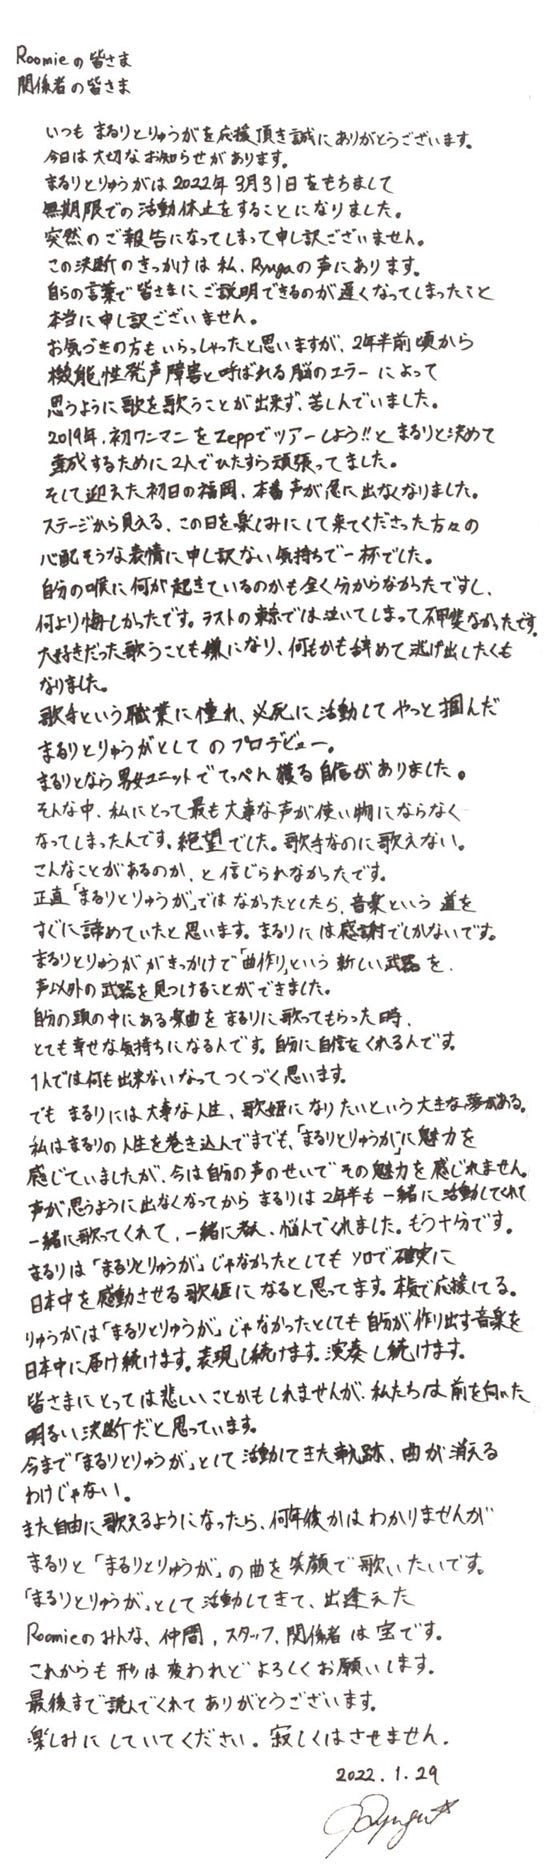 Roomieの皆さま
関係者の皆さま
いつも まるりとりゅうがを応援頂き誠にありがとうございます。
今日は大切なお知らせがあります。
まるりとりゅうがは2022年3月31日をもちまして
無期限での活動休止をすることになりました。
突然のご報告になってしまって申し訳ございません。
この決断のきっかけは私、Ryugaの声にあります。
自らの言葉で皆さまにご説明できるのが遅くなってしまったこと
本当に申し訳ございません。
お気づきの方もいらっしゃったと思いますが、2年半前頃から
機能性発声障害と呼ばれる脳のエラーによって
思うように歌を歌うことが出来ず、苦しんでいました。
2019年、初ワンマンをZeppでツアーしよう!!とまるりと決めて
達成するために2人でひたすら頑張ってました。
そして迎えた初日の福岡、本番声が急に出なくなりました。
ステージから見える、この日を楽しみにして来てくださった方々の
心配そうな表情に申し訳ない気持ちで一杯でした。
自分の喉に何が起きているのかも全く分からなかったですし、
何より悔しかったです。ラストの東京では泣いてしまって不甲斐なかったです。
大好きだった歌うことも嫌になり、何もかも辞めて逃げ出したくも
なりました。
歌手という職業に憧れ、必死に活動してやっと掴んだ
まるりとりゅうがとしてのプロデビュー。
まるりとなら男女ユニットでてっぺん獲る自信がありました。
そんな中、私にとって最も大事な声が使い物にならなく
なってしまったんです。絶望でした。歌手なのに歌えない。
こんなことがあるのか、と信じられなかったです。
正直「まるりとりゅうが」ではなかったとしたら、音楽という道を
すぐに諦めていたと思います。まるりには感謝でしかないです。
まるりとりゅうががきっかけで「曲作り」という新しい武器を、
声以外の武器を見つけることができました。
自分の頭の中にある楽曲をまるりに歌ってもらった時、
とても幸せな気持ちになる人です。自分に自信をくれる人です。
1人では何も出来ないなってつくづく思います。
でも まるりには大事な人生、歌姫になりたいという大きな夢がある。
私はまるりの人生を巻き込んでまでも、「まるりとりゅうが」に魅力を
感じていましたが、今は自分の声のせいでその魅力を感じれません。
声が思うように出なくなってから まるりは2年半も一緒に活動してくれて
一緒に歌ってくれて、一緒に考え、悩んでくれました。もう十分です。
まるりは「まるりとりゅうが」じゃなかったとしてもソロで確実に
日本中を感動させる歌姫になると思ってます。本気で応援してる。
りゅうがは「まるりとりゅうが」じゃなかったとしても自分が作り出す音楽を
日本中に届け続けます。表現し続けます。演奏し続けます。
皆さまにとっては悲しいことかもしれませんが、私たちは前を向いた
明るい決断だと思っています。
今まで「まるりとりゅうが」として活動してきた軌跡、曲が消える
わけじゃない。
また自由に歌えるようになったら、何年後かはわかりませんが
まるりと「まるりとりゅうが」の曲を笑顔で歌いたいです。
「まるりとりゅうが」として活動してきて、出逢えた
Roomieのみんな、仲間、スタッフ、関係者は宝です。
これからも形は変われどよろしくお願いします。
最後まで読んでくれてありがとうございます。
楽しみにしていてください。寂しくはさせません。
2022.1.29
Ryuga